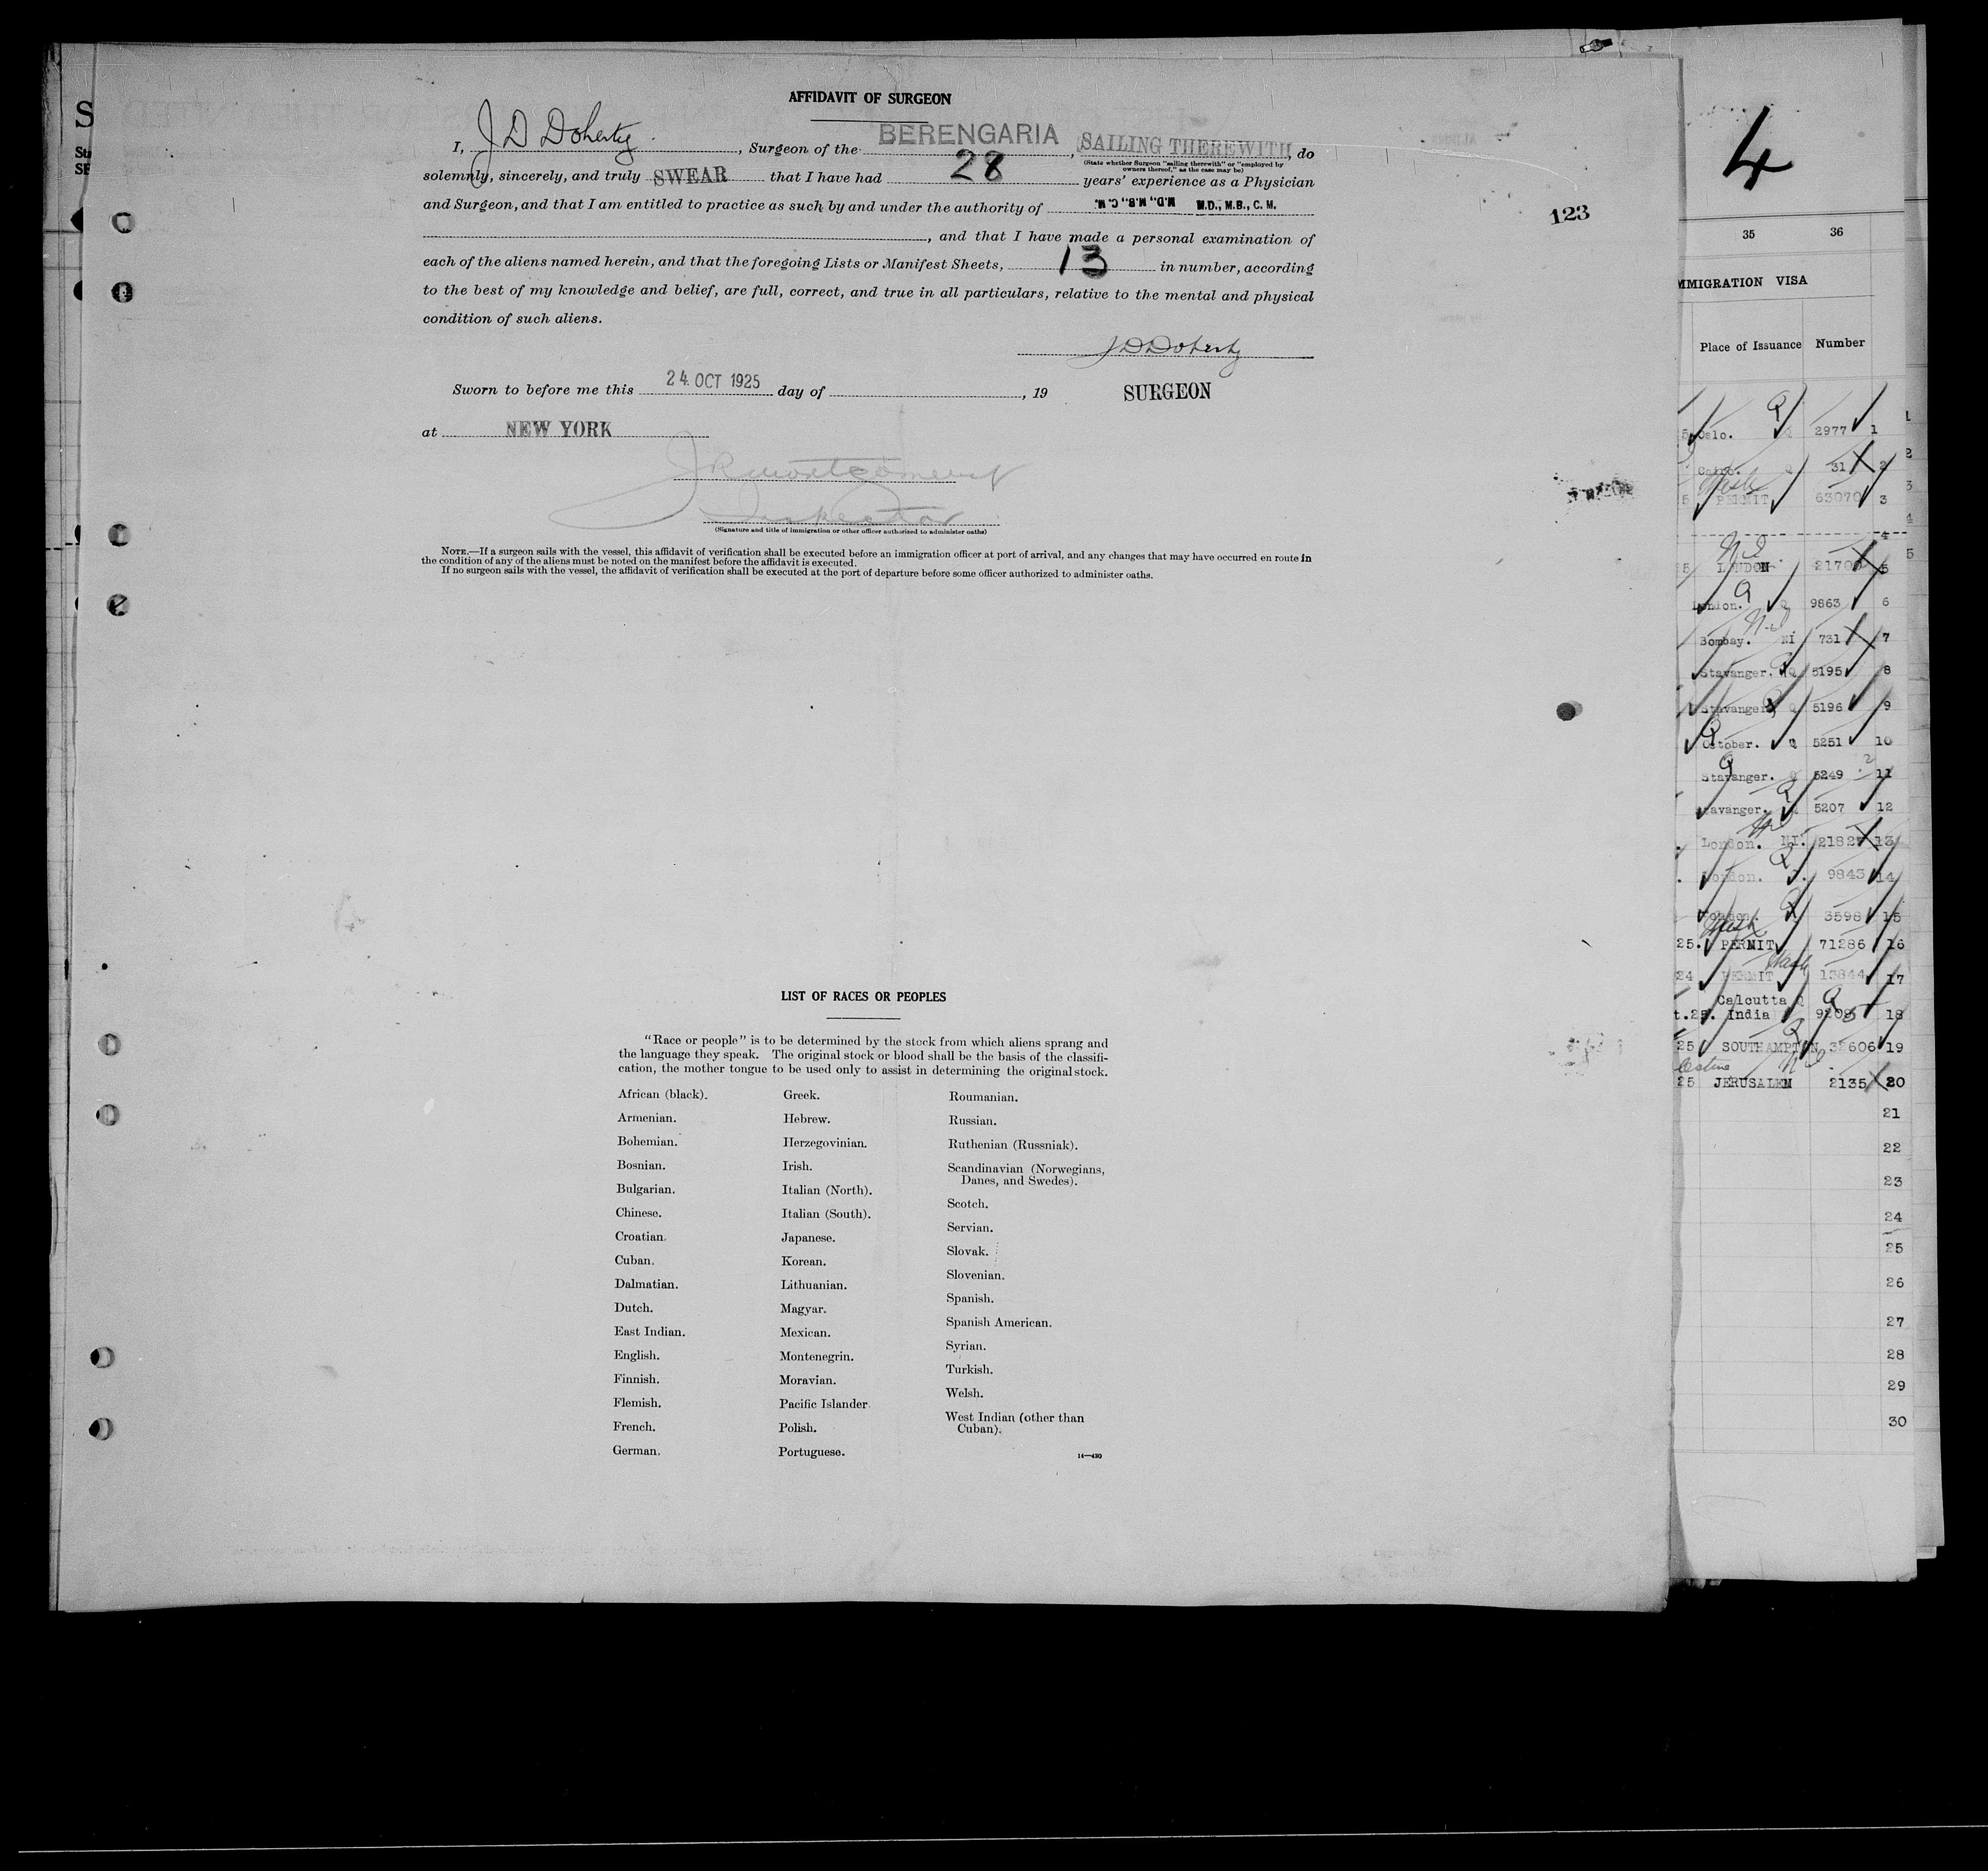 AFFIDAVIT OF SURGEON
I, J D Doherty, Surgeon of the BERENGARIA, SAILING THEREWITH, do
(State whether Surgeon "sailing therewith" or "employed by
owners thereof," as the case may be)
solemnly, sincerely, and truly SWEAR that I have had 28 years' experience as a Physician
and Surgeon, and that I am entitled to practice as such by and under the authority of M.D., M.B., C.M. M.D., M.B., C. M.
, and that I have made a personal examination of
each of the aliens named herein, and that the foregoing Lists or Manifest Sheets, 13 in number, according
to the best of my knowledge and belief, are full, correct, and true in all particulars, relative to the mental and physical
condition of such aliens.
J D Doherty
Sworn to before me this 24. OCT 1925 day of , 19
SURGEON
at NEW YORK
J R Montgomery
Inspector
(Signature and title of immigration or other officer authorized to administer oaths)
NOTE.—If a surgeon sails with the vessel, this affidavit of verification shall be executed before an immigration officer at port of arrival, and any changes that may have occurred en route in
the condition of any of the aliens must be noted on the manifest before the affidavit is executed.
If no surgeon sails with the vessel, the affidavit of verification shall be executed at the port of departure before some officer authorized to administer oaths.
123
LIST OF RACES OR PEOPLES
"Race or people" is to be determined by the stock from which aliens sprang and
the language they speak. The original stock or blood shall be the basis of the classifi-
cation, the mother tongue to be used only to assist in determining the original stock.
African (black).
Armenian.
Bohemian.
Bosnian.
Bulgarian.
Chinese.
Croatian.
Cuban.
Dalmatian.
Dutch.
East Indian.
English.
Finnish.
Flemish.
French.
German.
Greek.
Hebrew.
Herzegovinian.
Irish.
Italian (North).
Italian (South).
Japanese.
Korean.
Lithuanian.
Magyar.
Mexican.
Montenegrin.
Moravian.
Pacific Islander.
Polish.
Portuguese.
Roumanian.
Russian.
Ruthenian (Russniak).
Scandinavian (Norwegians,
Danes, and Swedes).
Scotch.
Servian.
Slovak.
Slovenian.
Spanish.
Spanish American.
Syrian.
Turkish.
Welsh.
West Indian (other than
Cuban).
14—430
4
35 36
MMIGRATION VISA
Place of Issuance Number
Oslo. Q 2977 1
Cairo. 31 2
5 PERMIT 63070 3
4
5 LONDON 5
London. Q 9863 6
Bombay. NI 731 7
Stavanger. Q 5195 8
Stavanger. Q 5196 9
October. Q 5251 10
Stavanger. 5249 11
tavanger. 5207 12
London. NI. 13
London. 9843 14
London. 3598 15
25. PERMIT 71286 16
24 PERMIT 13844 17
Calcutta Q
t.25. India 18
25 SOUTHAMPTON 19
25 JERUSALEM 2135 20
21
22
23
24
25
26
27
28
29
30